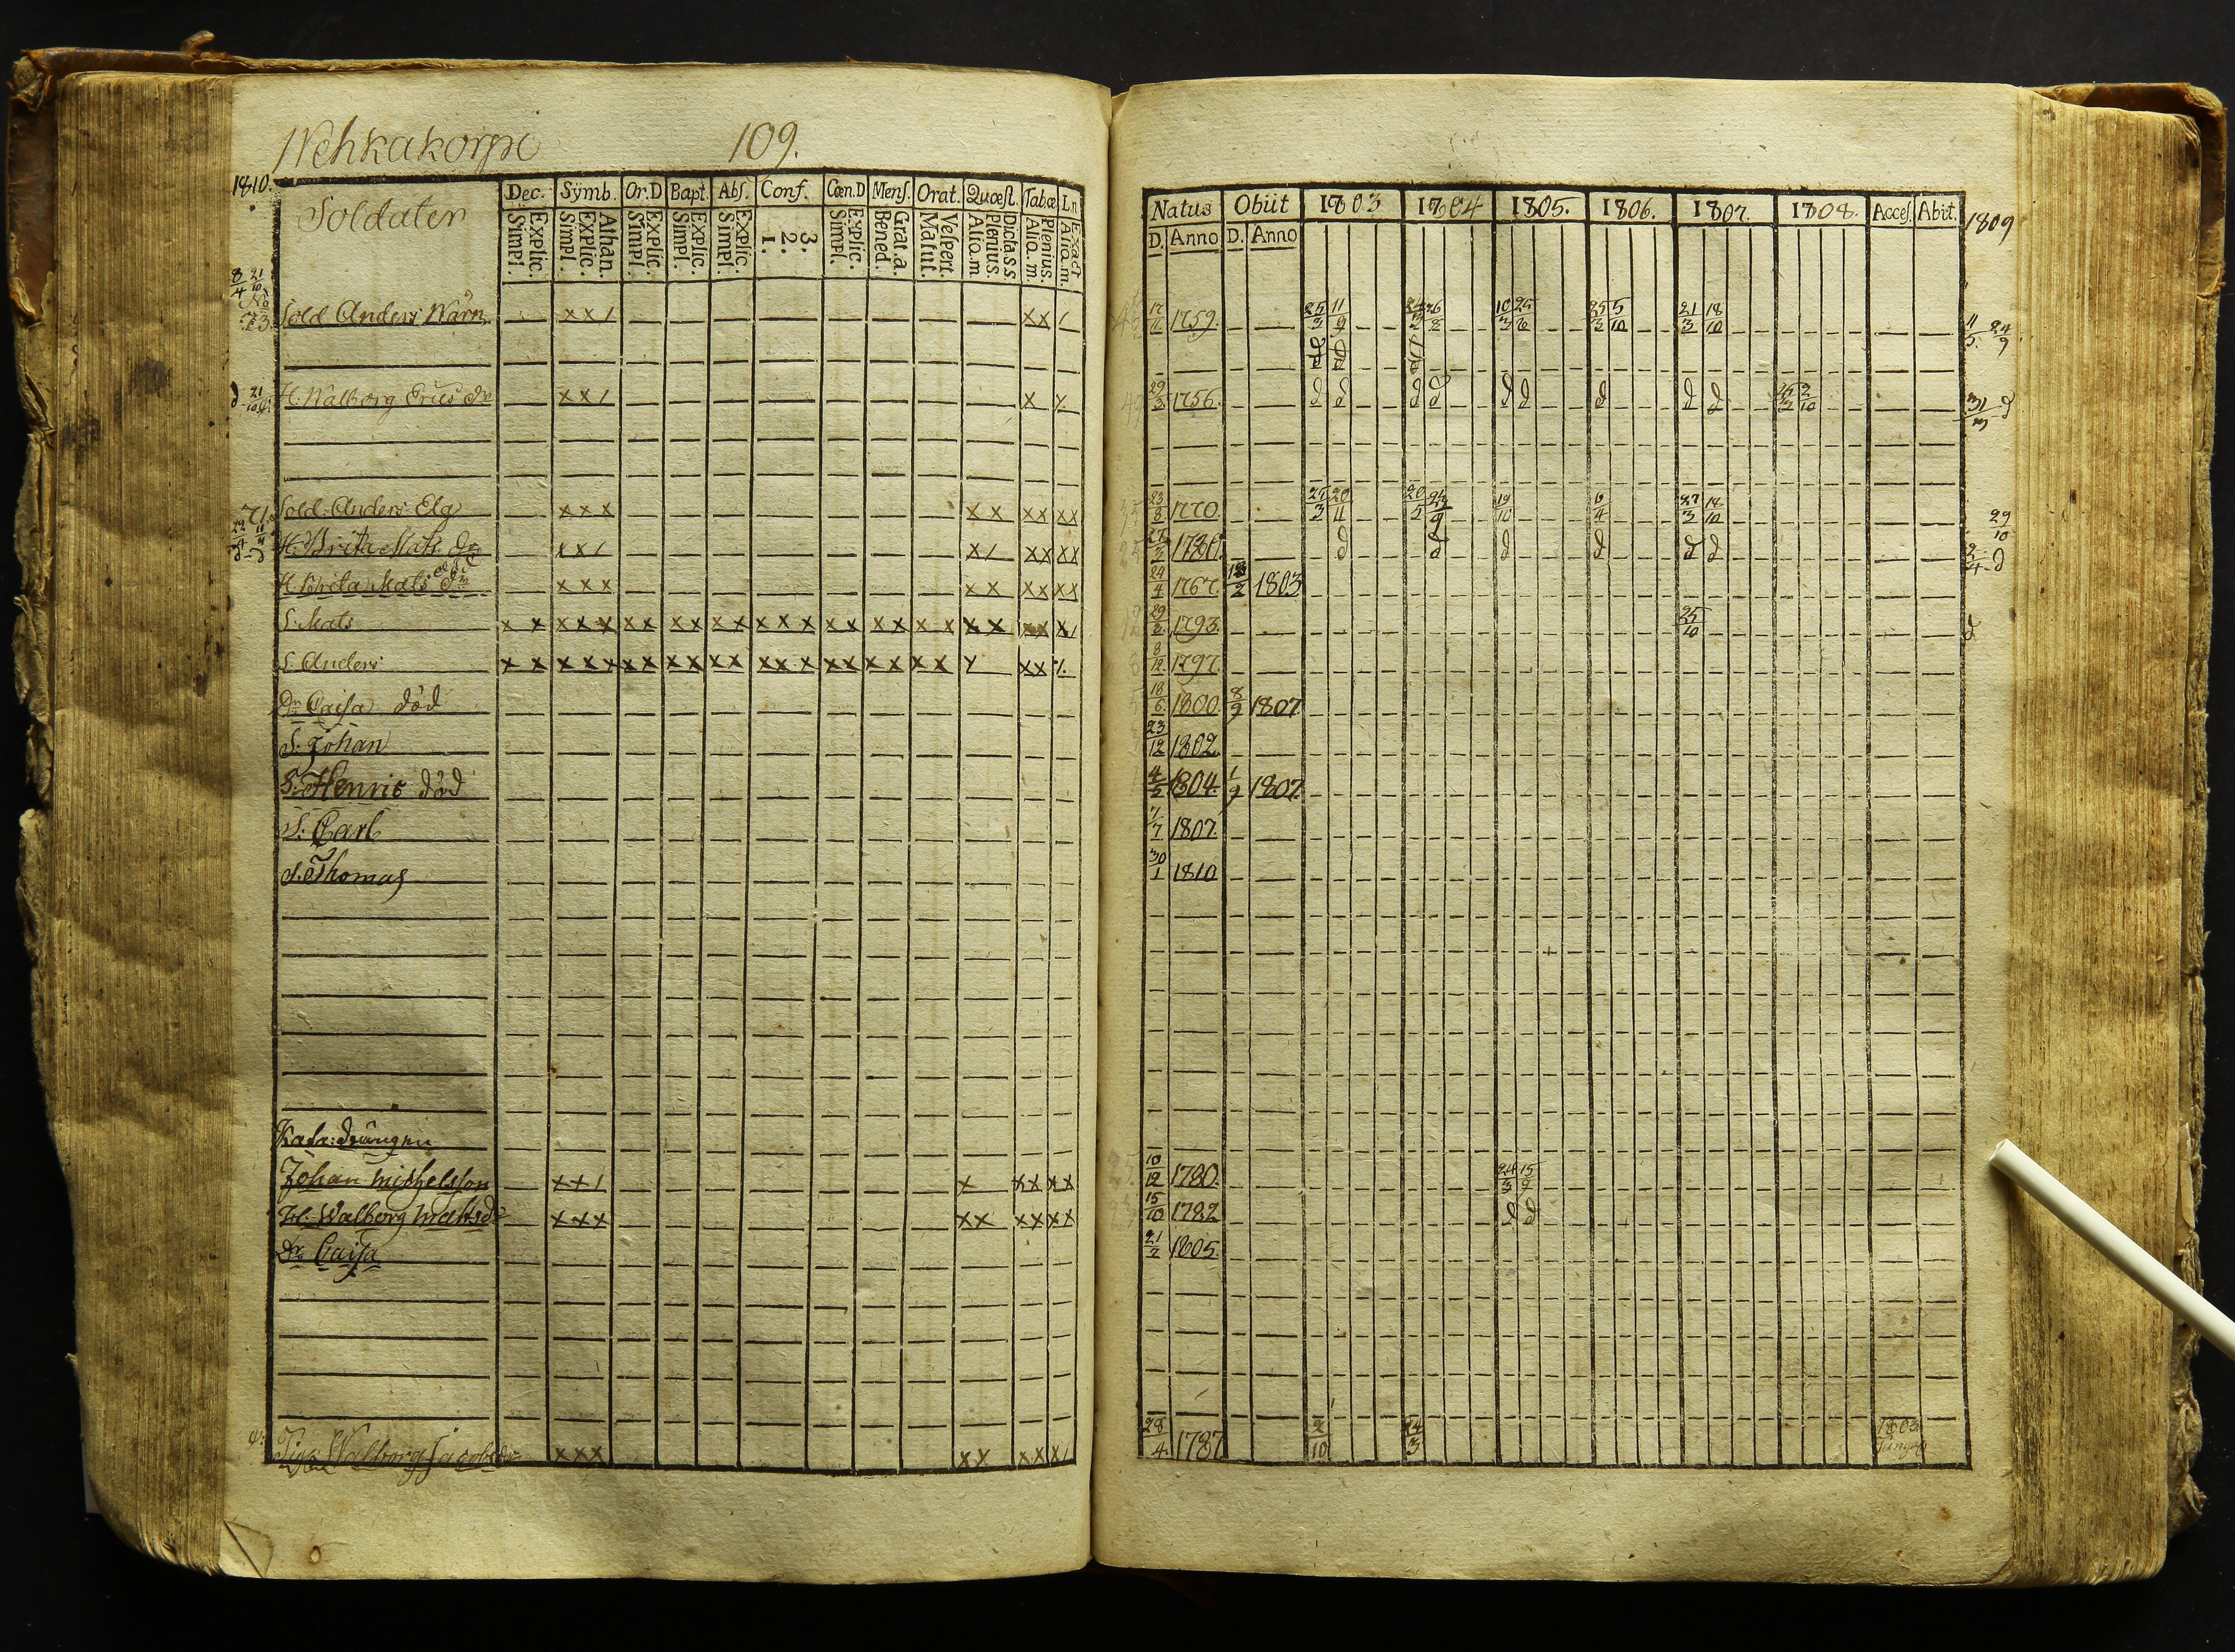 Wehkakorpi 109.
1810.
Soldaten
Dec. Sÿmb. Or.D Bapt. Abſ. Conf. Cœn.D Menſ. Orat. Quæſt. Tabæ Ln
Simpl. Explic. Simpl. Explic. Athan. Simpl. Explic. Simpl. Explic. Simpl. Explic. 1. 2. 3. Simpl. Explic. Bened. Grat.a. Matut. Veſpert. Alio.m Plenius. Dicta.s.s Alia.m. Plenius. Alia.m. Exact
8/4 21/10
No 73. Sold Anders Wärn x x / x x /
d 21/10 H. Walborg Erics dr x x / x x
Sold. Anders Elg x x x x x x x x x
H. Brita Mats dr x x / x / x x x x
H. Brita Mats dr död x x x x x x x x x
S. Mats x x x x x x x x x x x x x x x x x x x x x x x x x /
S. Anders x x x x x x x x x x x x x x x x x x x x x x x x /
Dr Caisa död
S. Johan
S. Henric död
S. Carl
S. Thomas
Johan Michelsson x x / x x x x x
H. Walborg Matsdr x x x x x x x x x
Dr Caisa
Walborg Jacobsdr x x x x x x x x /
Natus Obiit 1803 1804 1805. 1806. 1807. 1808. Acceſ. Abit. 1809
D. Anno D. Anno
17/11 1759. 25/3 11/9 10/3 25/6 25/3 5/10 21/3 18/10
d d d
29/3 1756. d d d d d d d d d 26/3 2/10 31/3 d
23/8 1770. 25/3 20/11 19/10 6/4 27/3 14/10 29/10
27/3 1780. d d d d d d 2/4 d
24/4 1767. 18/2 1803
29/2 1793. 25/10 d
8/12 1797.
18/6 1800. 8/9 1807
23/12 1802.
4/5 1804. 1/9 1807.
7/7 1807.
30/1 1810
10/12 1780. 24/3 15/9
15/10 1782 d d
21/2 1805.
28/4 1787 2/10 14/3 1803